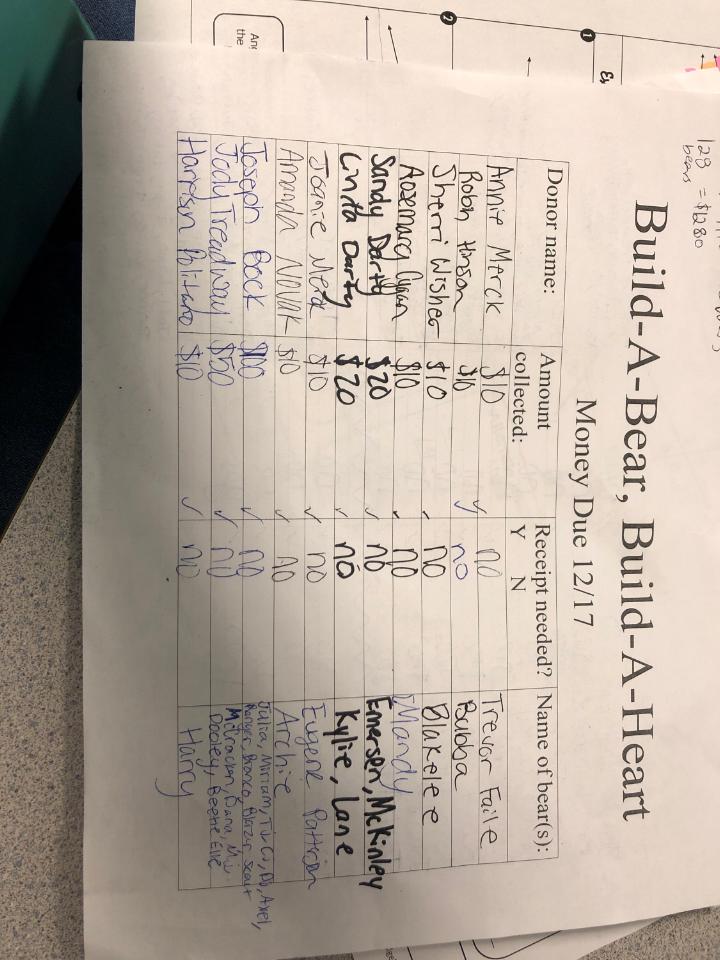 128 = $1280
bears
Build-A-Bear, Build-A-Heart
Money Due 12/17
Donor name: Amount collected: Receipt needed? Y N Name of bear(s):
Annie Merck $10 no Trevor Faile
Robin Hinson $10 ✓ no Bubba
Sherri Wisher $10 ✓ no Blakelee
Rosemary $10 ✓ no Mandy
Sandy Darty $20 ✓ no Emersen, McKinley
Linda Darty $20 ✓ no Kylie, Lane
Joanie Merck $10 ✓ no Eugene Patterson
Amanda NOVAK $10 ✓ no Archie
Joseph Bock $100 ✓ no Julia, Miriam, Axel,
Ranger, Bronco, Blazer, Scout
Jody Treadway $50 ✓ no McCracken, Dana,
Dooley, Beene, Elle
Harrison $10 ✓ no Harry
1
2
the